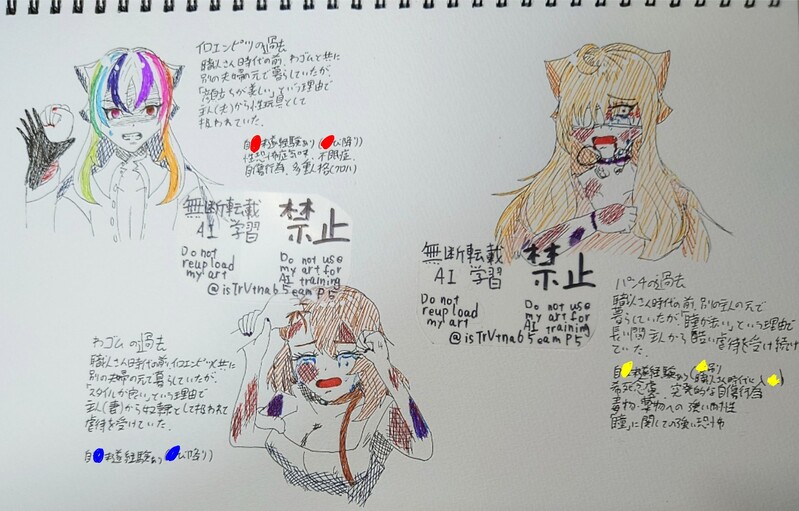 イロエンピツの過去
職人さん時代の前、わゴムと共に
別の夫婦の元で暮らしていたが、
「顔立ちが美しい」という理由で
主人(夫)から性玩具として
扱われていた。
自 未遂経験あり( び降り)
性恐怖症気味、不眠症、
自傷行為、多重人格(クロハ)
無断転載
AI 学習
禁止
Do not
reupload
my art
Do not use
my art for
AI training
@isTrVtna65eamP5
わゴムの過去
職人さん時代の前、イロエンピツと共に
別の夫婦の元で暮らしていたが、
「スタイルが良い」という理由で
主人(妻)から奴隷として扱われて
虐待を受けていた。
自 未遂経験あり( び降り)
無断転載
AI 学習
禁止
Do not
reupload
my art
Do not use
my art for
AI training
@isTrVtna65eamP5
パンチの過去
職人さん時代の前、別の主人の元で
暮らしていたが「瞳が赤い」という理由で
長い間主人から酷い虐待を受け続け
ていた。
自 未遂経験あり( 吊り
希死念慮、突発的な自傷行為
毒物・薬物への強い耐性
瞳に関しての強い恐怖